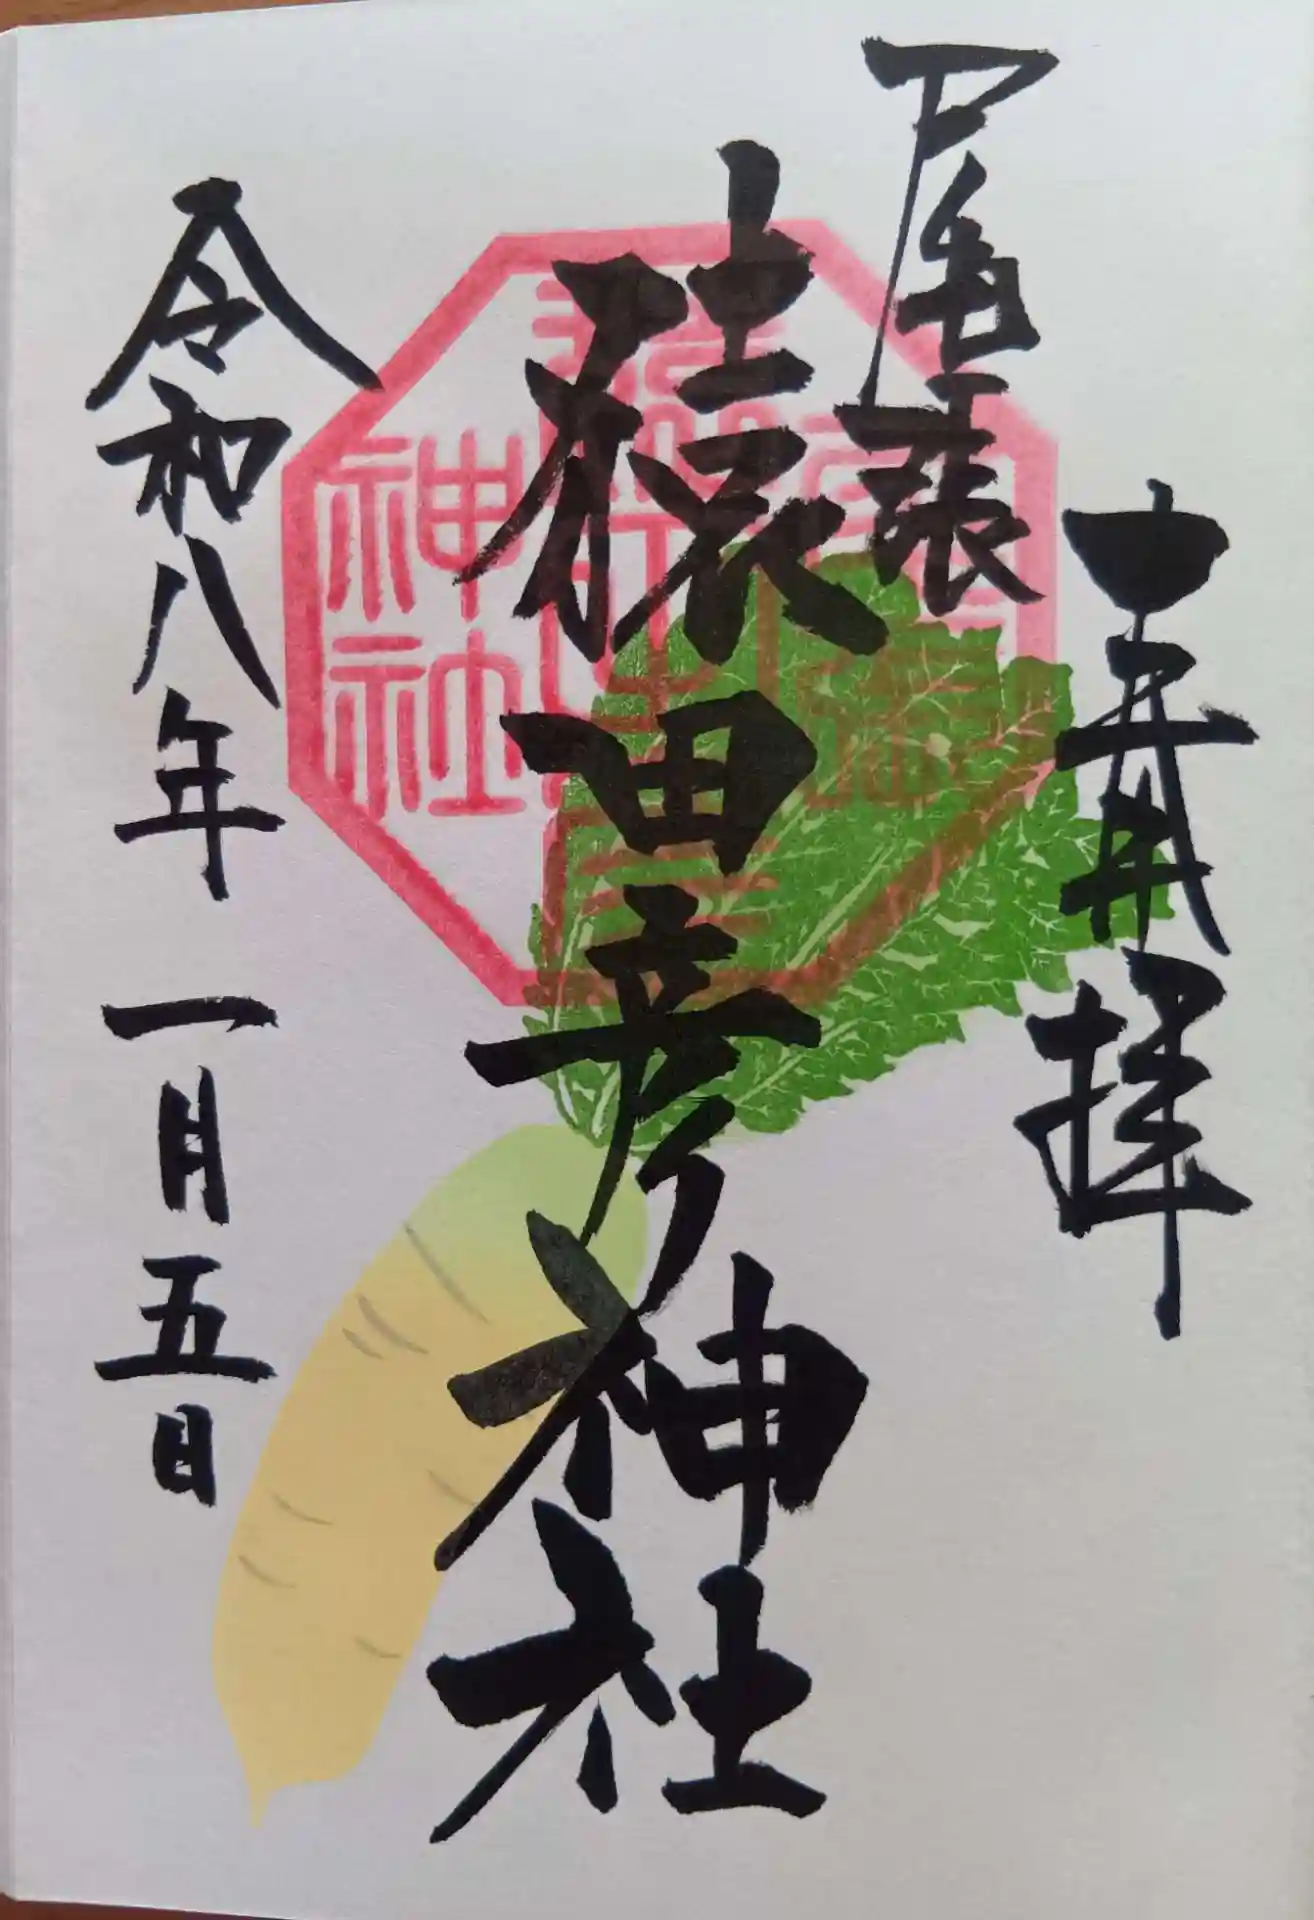 拝
尾張
猿田彦神社
令和八年一月五日
尾張
猿田彦
神社